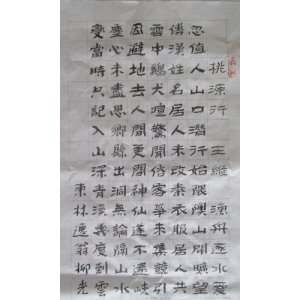 桃源行 王維 漁舟逐水愛
忽值人山口潛行始隈隩山開曠望
傳漢姓名居人未改秦衣服居人共
雲中鷄犬喧驚聞俗客爭來集引
因避地去人間更聞神仙遂不還峽
塵心未盡思鄉縣出洞無論隔山水
變當時只記入山深青溪幾度雲
東林逸翁柳光